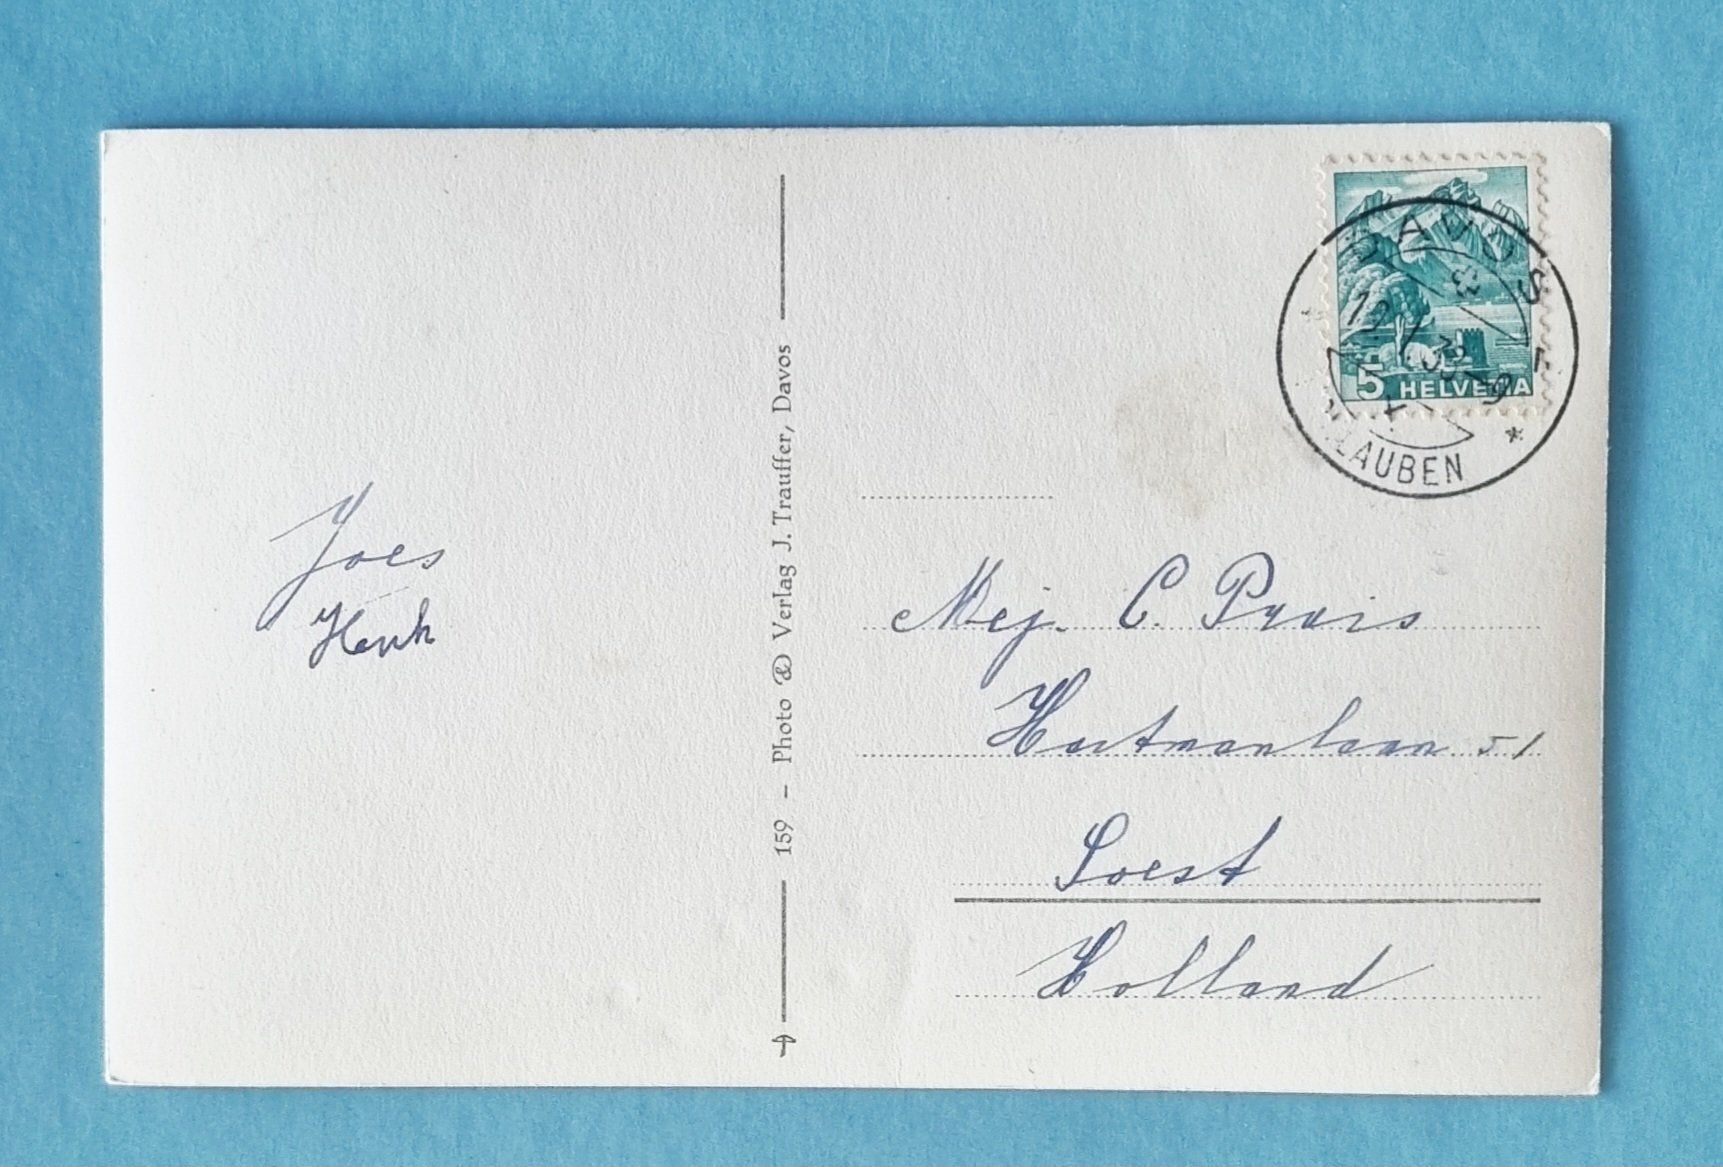 Joes
Henk
159 – Photo & Verlag J. Trauffer, Davos
5 HELVETIA
DAVOS
LAUBEN
Mej. C. Prais
Hartmanlaan 51
Soest
Holland